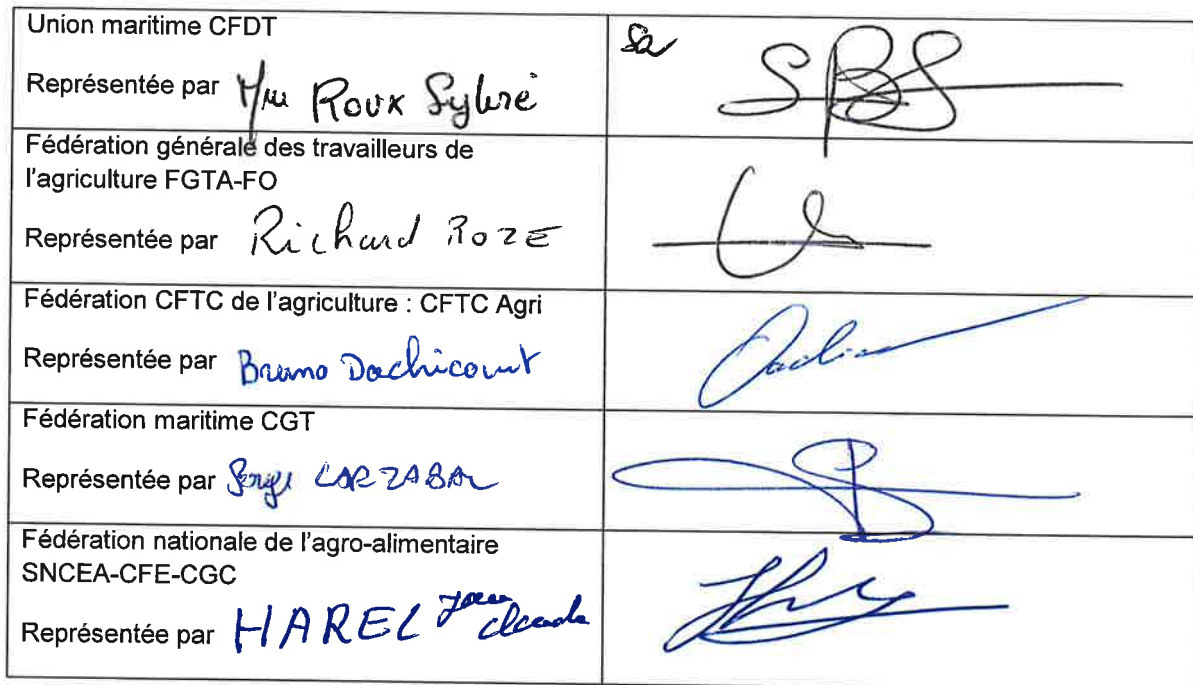 Union maritime CFDT
Représentée par Mme Roux Sylvie
Fédération générale des travailleurs de
l'agriculture FGTA-FO
Représentée par Richard ROZE
Fédération CFTC de l'agriculture : CFTC Agri
Représentée par Bruno Dachicourt
Fédération maritime CGT
Représentée par Serge LARZABAL
Fédération nationale de l'agro-alimentaire
SNCEA-CFE-CGC
Représentée par HAREL Jean
Claude